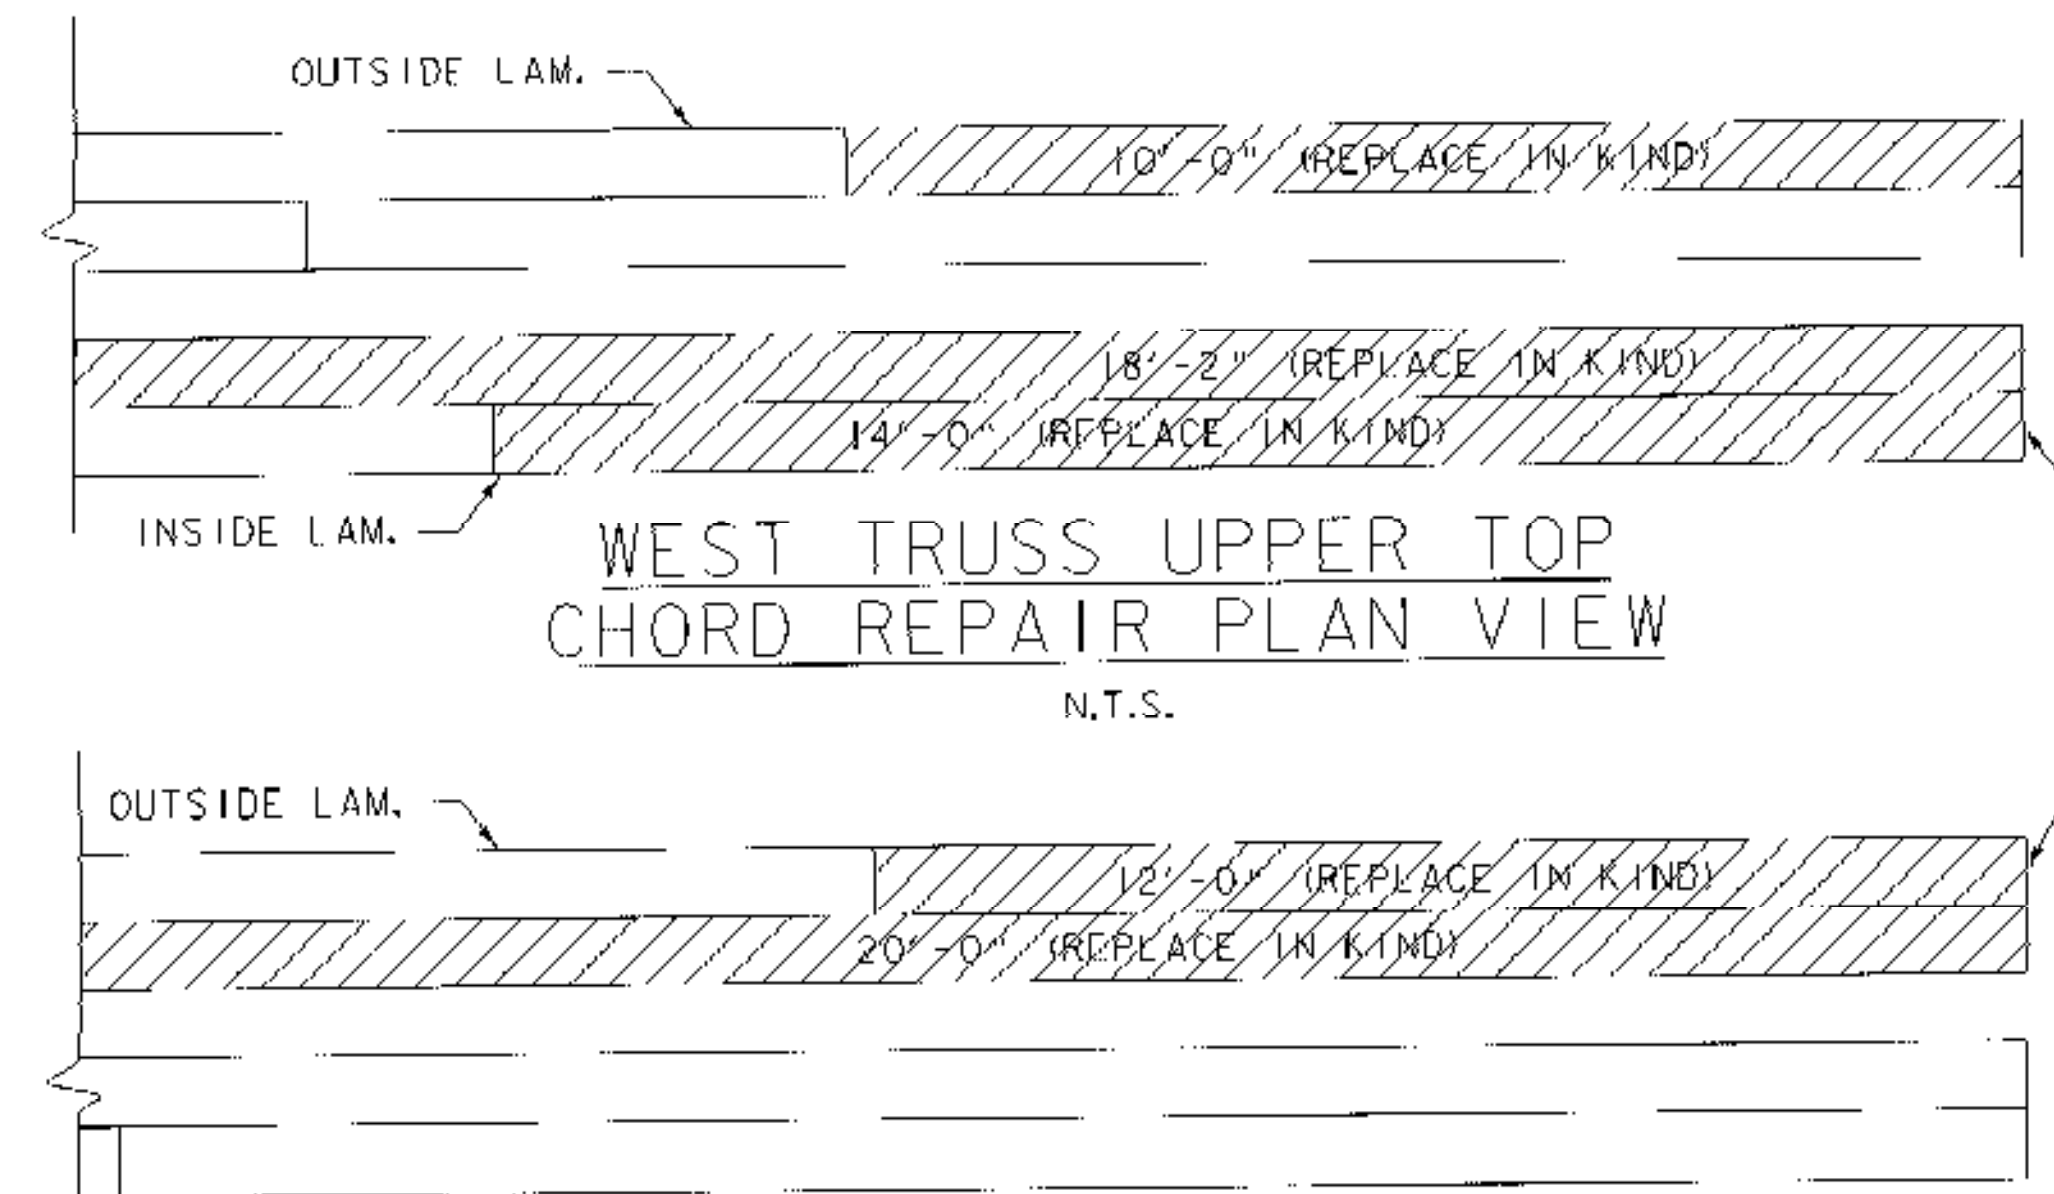 OUTSIDE LAM.
10'-0" (REPLACE IN KIND)
18'-2" (REPLACE IN KIND)
14'-0" (REPLACE IN KIND)
INSIDE LAM.
WEST TRUSS UPPER TOP
CHORD REPAIR PLAN VIEW
N.T.S.
OUTSIDE LAM.
12'-0" (REPLACE IN KIND)
20'-0" (REPLACE IN KIND)